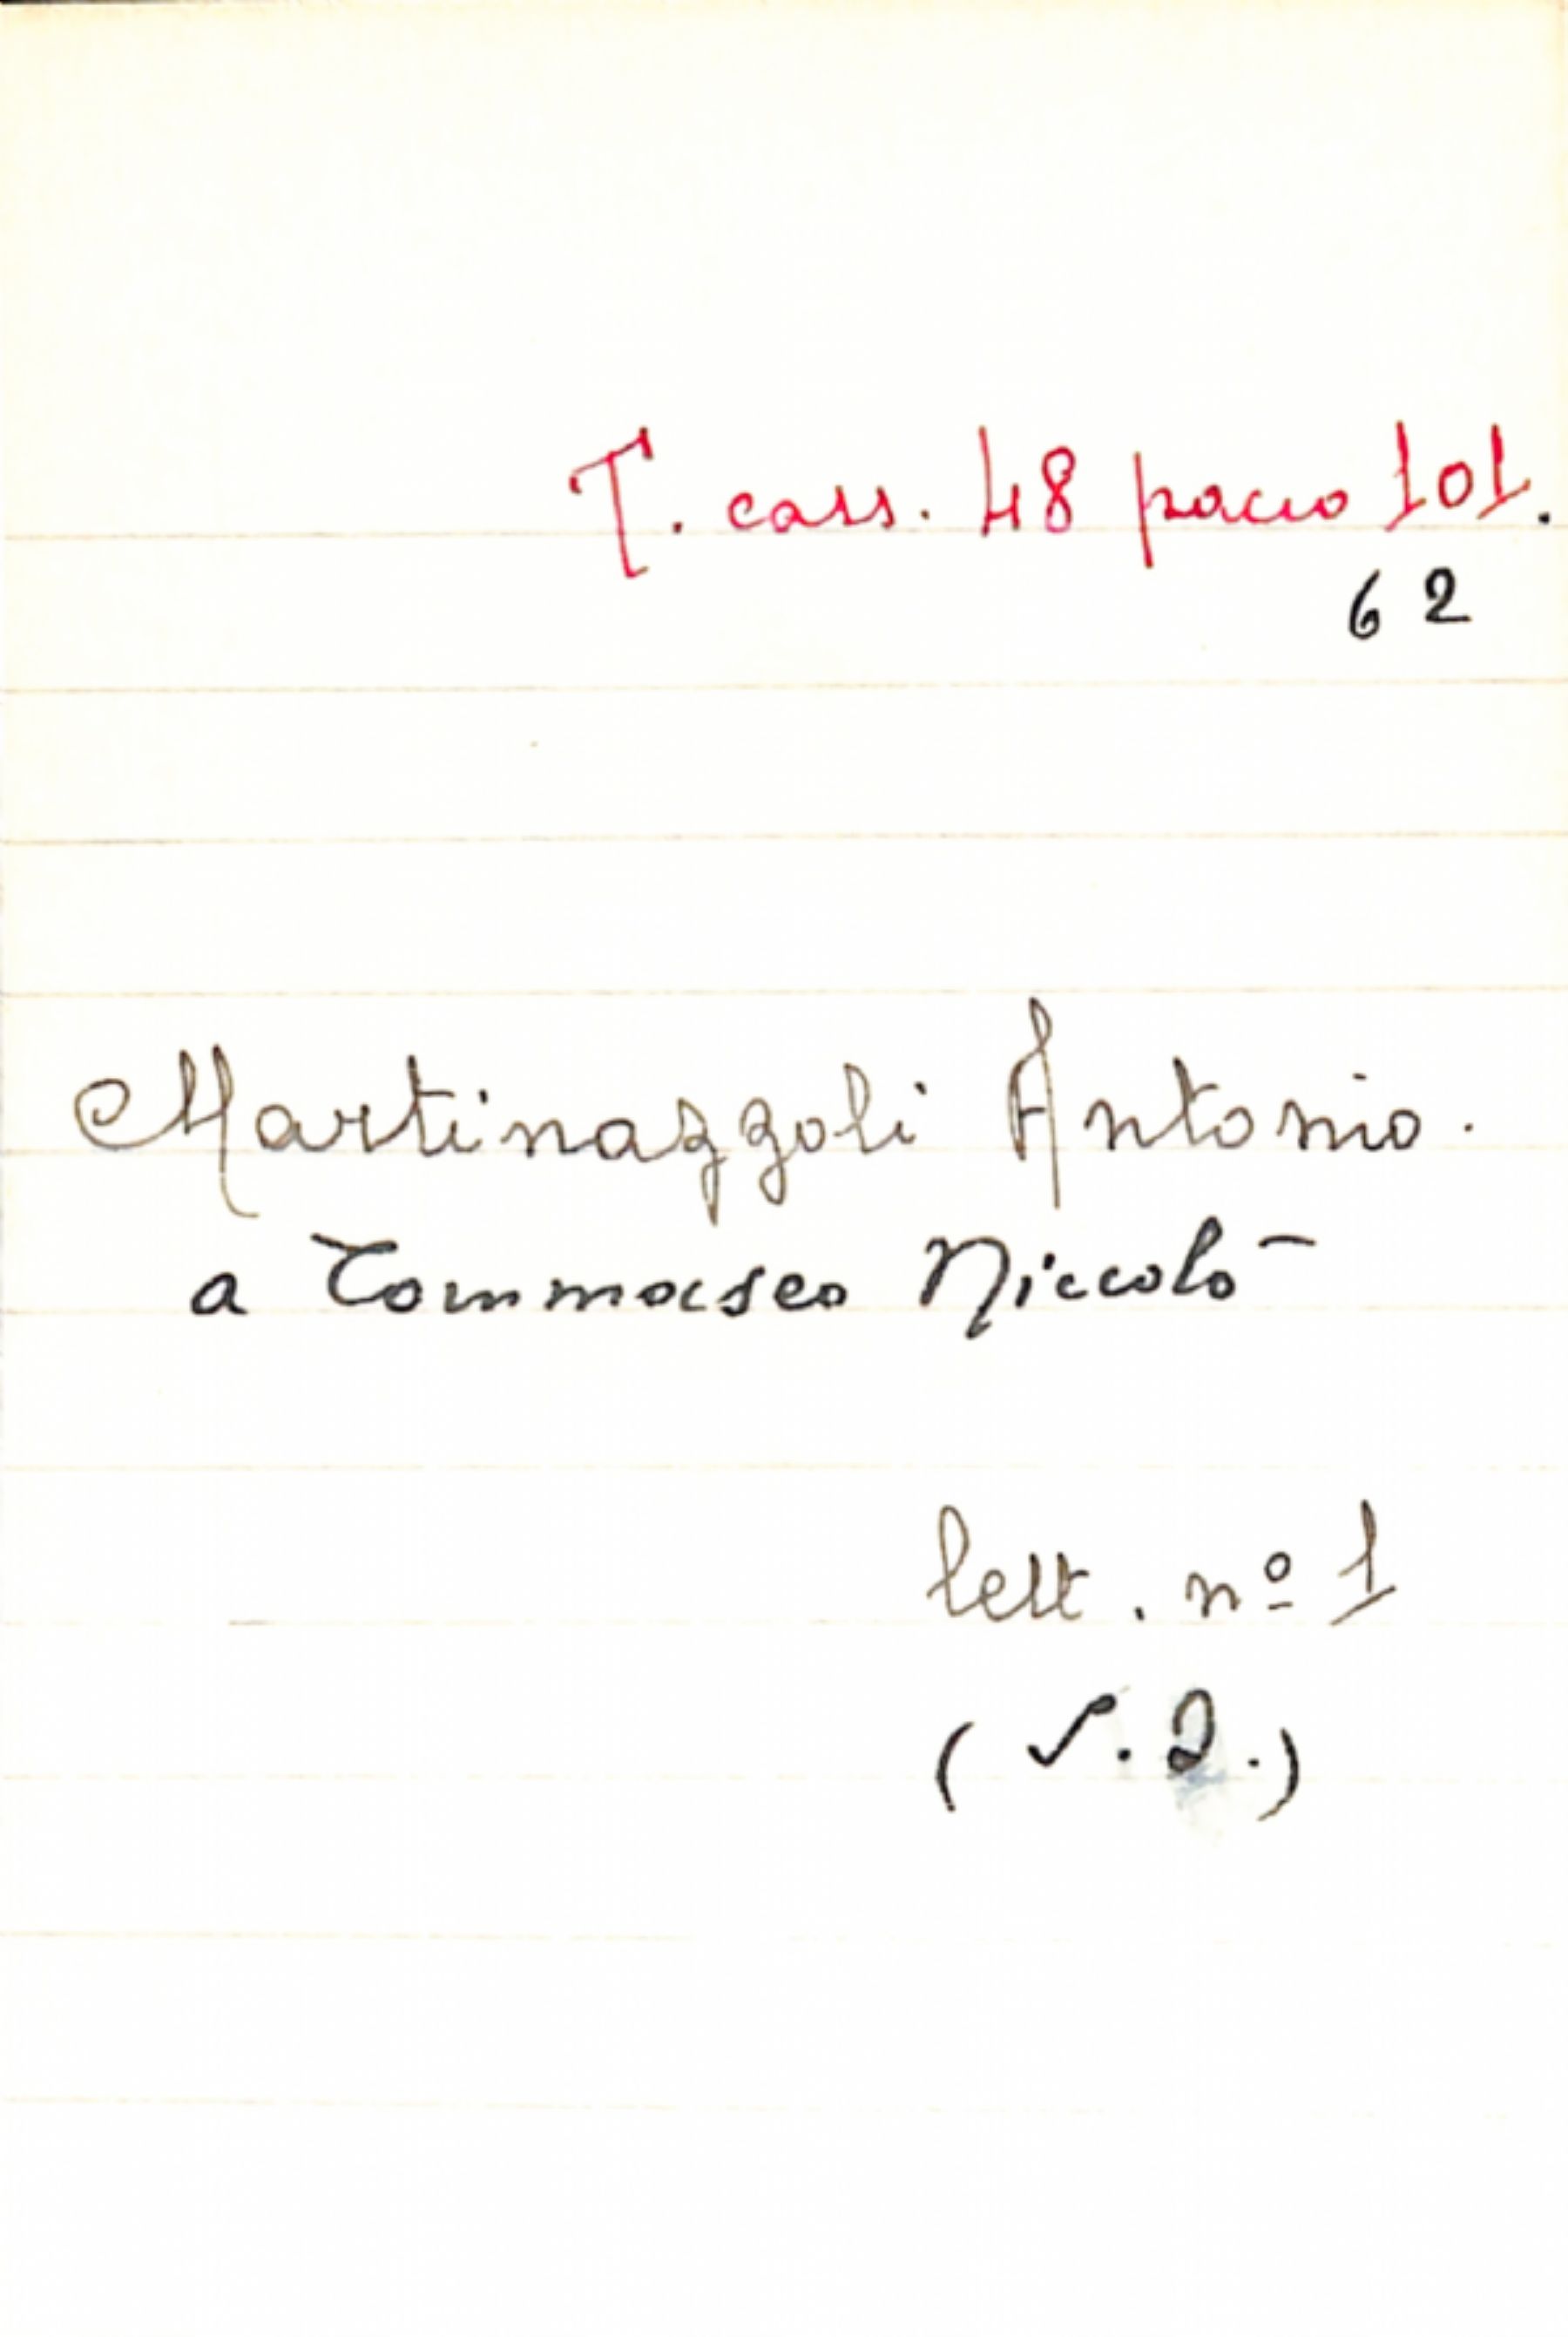 T. cass. 48 pacco 101.
62
Martinazzoli Antonio.
a Tommaseo Niccolò
lett. nº 1
(S. D.)